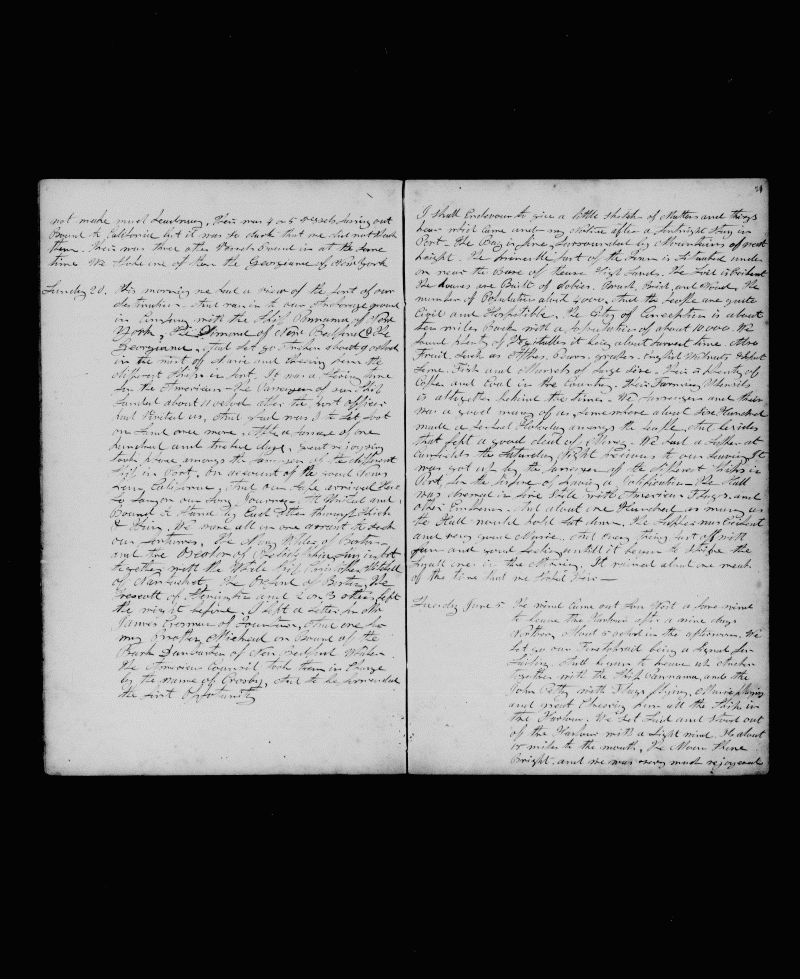 not make much Leadway, their was 4 or 5 vessels lying out
Bound to California but it was so dark that we did not speak
them. their was three other Vessels Bound in at the same
time We Spoke one of them the Georgiana of New York
Sunday 20. this morning we had a view of the Port of our
destination. And ran in to our Anchorage ground
in Company with the Ship Pannama of New
York, the of New Bedford & the
Georgiana, And let go Anchor about 9 oclock
in the mist of Music and cheering from the
different Ships in Port. It was a time
for the Americans. the Passengers of our Ship
Landed about 11 oclock after the port officer
had Visited us, And glad was I to Set foot
on Land once more, After a passage of one
hundred and twelve days, great rejoycing
took place amongst the passengers of the different
Ships in Port, On account of the good News
from California, And our Safe arrival here
So far on our Long Journey, United and
Bound to Stand by Each other through thick
& thin, We were all on one errant to seek
our fortunes. the Ship of Boston
and the of Philadelphia Lying in port
together with the Whale Ship Christopher Mitchell
of Nantucket, the of Boston, the
Prescott of Stonington and 2 or 3 others left
the night before, I left a Letter for Mr
James Freeman of And one for
my Brother Michael on Board of the
Bark of New Bedford Whaler
the American Council took them in Charge
by the name of Crosby, And to be forwarded
the first Opportunity
21
I shall Endeavour to give a little sketch of Matters and things
hear which came under my notice after a fortnight stay in
Port. the Bay is fine, Surrounded by Mountains of great
height. the part of the Town is Situated under
or near the Base of these High Land. the Soil is
the houses are Built of dobies. Brick, and Wood. the
number of Population about 4000. And the people are quite
Civil and Hospitible. the City of Conception is about
ten miles Back with a population of about 10000. We
found plenty of it being about harvest time. Also
Fruit, Such as Apples, Pears, grapes. English Walnuts &
Fish and Mussels of Large Size. their is plenty of
Copper and Coal in the Country. their Farming Utensils
is altogether behind the times. We passengers and their
was a good many of us, Somewhere about Five Hundred
made a perfect Holoday amongst the people, And besides
that left a good deal of Money. We had a at
the Saturday Night previous to our leaving It
was got up by the passengers of the different Ships in
Port, for the purpose of having a the Hall
was dressed in fine Stile with American Flags and
other Emblems. And about one Hundred as many as
the Hall would hold Sat down. the Supper was
and very good Music, And every thing past off with
fun and good feeling untill it began to Strike the
Small ones in the Morning. It rained about one week
of the time that we Staid here —
Tuesday June 5 the wind Came out Sou West a fare wind
to leave the Harbour after a nine days
Norther, About 5 oclock in the afternoon. We
let go our Foretopsail being a Signal for
Sailing. And began to heave up Anchor
together with the Ship Pannama, and the
John with Flags flying, Music playing
and great Cheering from all the Ships in
the Harbour. We Set Sail and Stood out
of the Harbour with a Light wind. Its about
miles to the mouth, the Moon Shone
Bright, and we was every much rejoyced